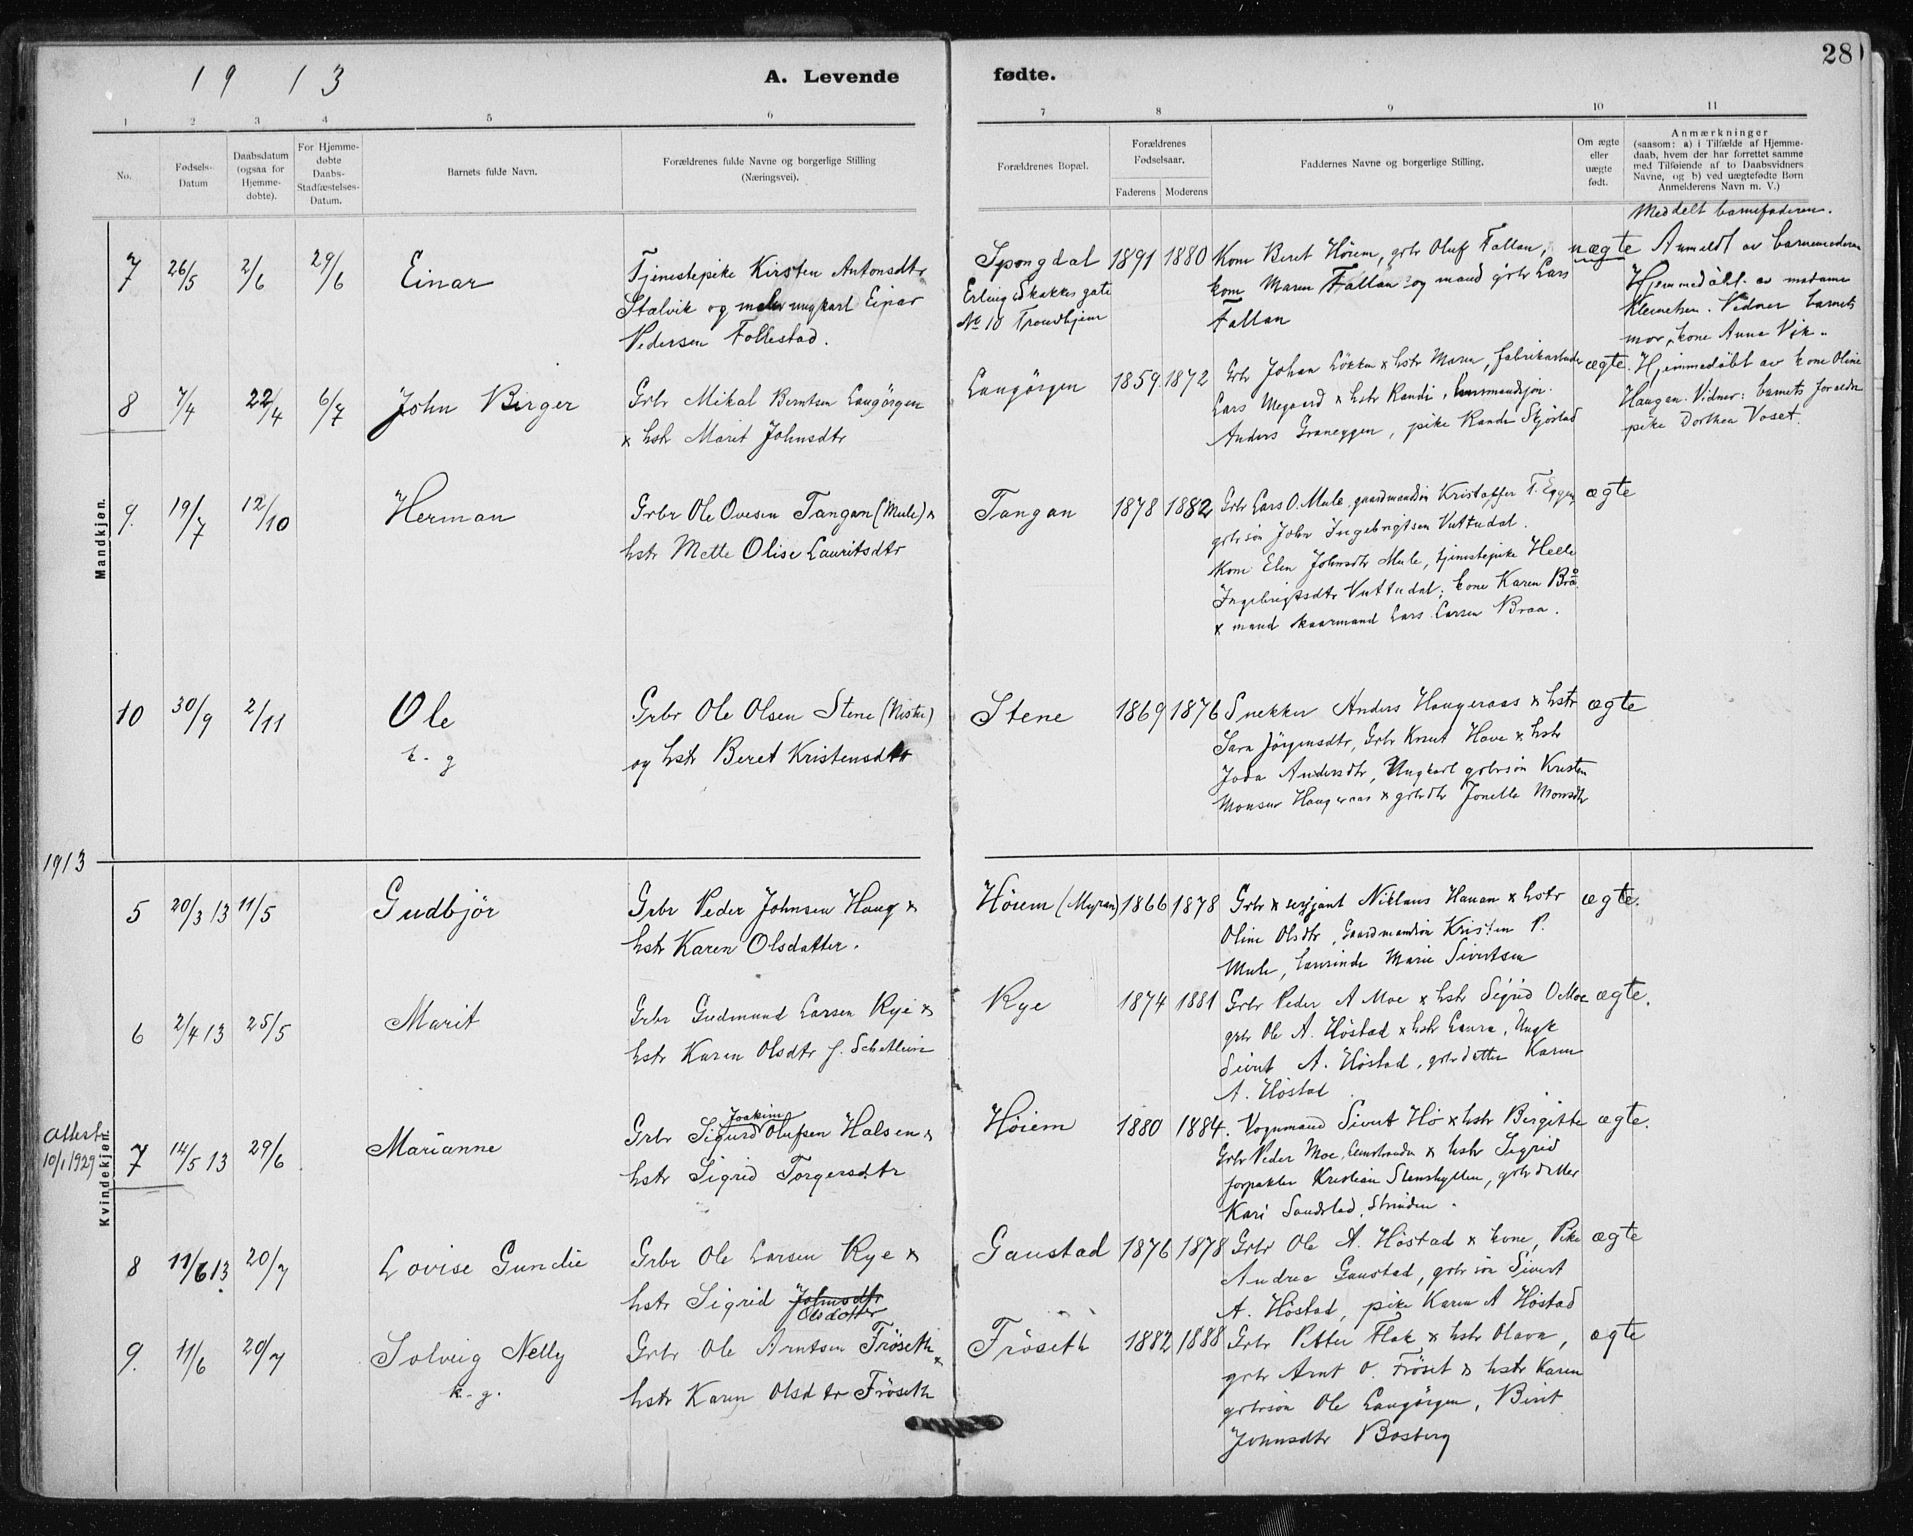 28
1913
A. Levende fødte.
1 2 3 4 5 6 7 8 9 10 11
No.
Fødsels-Datum
Daabsdatum (ogsaa for Hjemme-døbte).
For Hjemme-døbte Daabs-Stadfæstelses-Datum.
Barnets fulde Navn.
Forældrenes fulde Navne og borgerlige Stilling (Næringsvei).
Forældrenes Bopæl.
Forældrenes Fødselsaar.
Faderens Moderens
Faddernes Navne og borgerlige Stilling.
Om ægte eller uægte født.
Anmærkninger
(saasom: a) i Tilfælde af Hjemme-
daab, hvem der har forrettet samme
med Tilføiende af to Daabsvidners
Navne, og b) ved uægtefødte Børn
Anmelderens Navn m. V.)
Mandkjøn.
7 26/5 2/6 29/6 Einar
Tjenestepike Kirsten Antonsdtr
Stalvik og maler ungkarl Einar
Pedersen Follestad.
Spongdal
Erling Skakkes gate
No 10 Trondhjem
1891 1880
Kone Beret Höiem, grbr Oluf Fallan,
kone Maren Fallan og mand grbr Lars
Fallan
uægte
Meddelt barnefaderen.
Anmeldt av barnemoderen
Hjemmedöbt av madame
Klemetsen. Vidner barnets
mor, kone Anna Vik.
8 7/4 22/4 6/7 John Birger
Grbr Mikal Berntsen Langörgen
x hstr Marit Johnsdtr
Langörgen
1859 1872
Grbr Johan Lökken x hstr Maren, fabrikarbeider
Lars Megaard x hstr Randi,
Anders Graneggen, pike Randi Skjöstad
ægte.
Hjemmedöbt av kone Oline
Haugan. Vidner: barnets foreldre
pike Dorthea Voset.
9. 19/7 12/10 Herman
Grbr Ole Ovesen Tangan (Mule) x
hstr Mette Olise Lauritsdtr
Tangan
1878 1882
Grbr Lars O. Mule, gaardmandsön Kristoffer T. Eggen,
grbrsön John Ingebrigtsen Vuttudal.
Kone Elen Johnsdtr Mule, tjenestepike Helle
Ingebrigtsdtr Vuttudal, kone Karen Brå
x mand skaarmand Lars Larsen Braa.
ægte
10 30/9 2/11 Ole
k. g
Grbr Ole Olsen Stene (Nistu)
og hstr Beret Kristensdtr
Stene
1869 1876
Snekker Anders Haugeraas x hstr
Sara Jörgensdtr, Grbr Knut Hove x hstr
Joda Andersdtr, Ungkarl grbrsön Kristen
Monsen Haugeraas x grbrdtr Jonella Monsdtr
ægte
1913
Kvindekjøn.
5 20/3 13 11/5 Gudbjör
Grbr Peder Johnsen Haug x
hstr Karen Olsdatter.
Höiem (Myran) 1866 1878
Grbr x sersjant Niklaus Hanan x hstr
Oline Olsdtr, Gaardmandsön Kristen P.
Mule, Laurinde Marie Sivertsen
ægte.
6 2/4 13 25/5 Marit
Grbr Gudmund Larsen Rye x
hstr Karen Olsdtr f.
Rye 1874 1881
Grbr Peder A Moe x hstr Sigrid O Moe
grbr Ole A. Höstad x hstr Laura, Ungk
Sivert A. Höstad, grbrdatter Karen
A. Höstad
ægte.
Attest
10/1 1929
7 14/5 13 29/6 Marianne
Joakim
Grbr Sigurd Olufsen Halsen x
hstr Sigrid Torgersdtr
Höiem 1880 1884.
Vognmand Sivert Hö x hstr Birgitte
Grbr Peder Moe, Leinstranden x hstr Sigrid
forpakter Kristian Stenshyllen, grbrdatter
Kari Sandstad, Strinden.
ægte.
8 11/6 13. 20/7 Lovise Gundie
Grbr Ole Larsen Rye x
hstr Sigrid Johnsdtr
Olsdatter
Gaustad 1876 1878
Grbr Ole A. Höstad x kone, Pike
Andrea Gaustad, grbrsön Sivert
A. Höstad, pike Karen A Höstad
ægte
9. 11/6 20/7 Solveig Nelly
k. g.
Grbr Ole Arntsen Fröseth x
hstr Karen Olsdtr Fröseth
Fröseth 1882 1888
Grbr Petter Flak x hstr Olava,
grbr Arnt O. Fröset x hstr Karen
grbrsön Ole Langörgen, Berit
Johnsdtr Bosberg
ægte